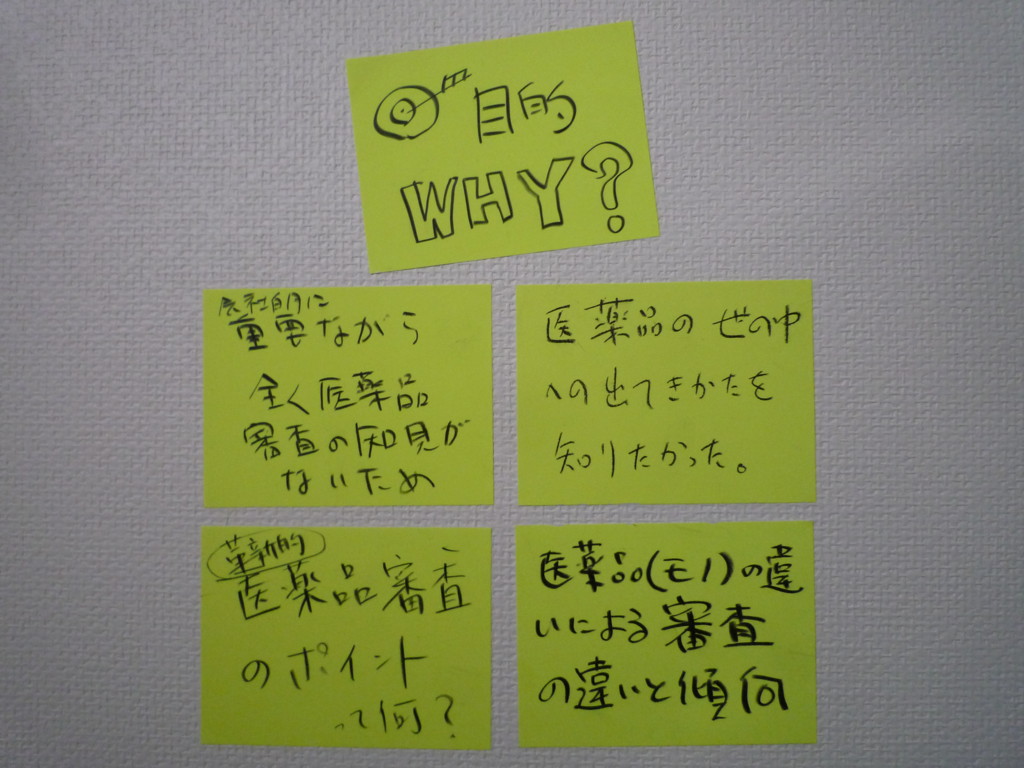 目的
WHY?
重要ながら
全く医薬品
審査の知見が
ないため
医薬品の世の中
への出てきかたを
知りたかった。
革新的
医薬品審査
のポイント
って何?
医薬品(モノ)の違
いによる審査
の違いと傾向